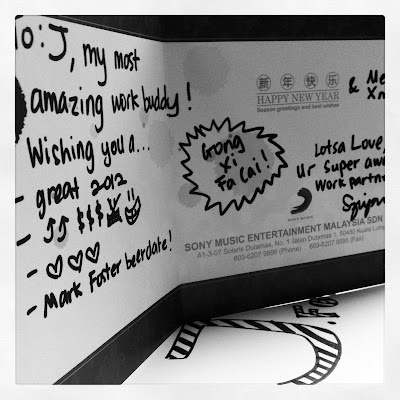 To: J, my most
amazing work buddy!
Wishing you a...
- great 2012
- $$$
-
- Mark Foster beerdate!
新年快乐
HAPPY NEW YEAR
Season greetings and best wishes
&
Gong
Xi
Fa Cai!
Lotsa Love,
Ur super
work
SONY MUSIC
SONY MUSIC ENTERTAINMENT MALAYSIA SDN
A1-3-07 Solaris Dutamas, No. 1 Jalan Dutamas 1, 50480 Kuala
603-6207 9896 (Phone) - 603-6207 9895 (Fax)